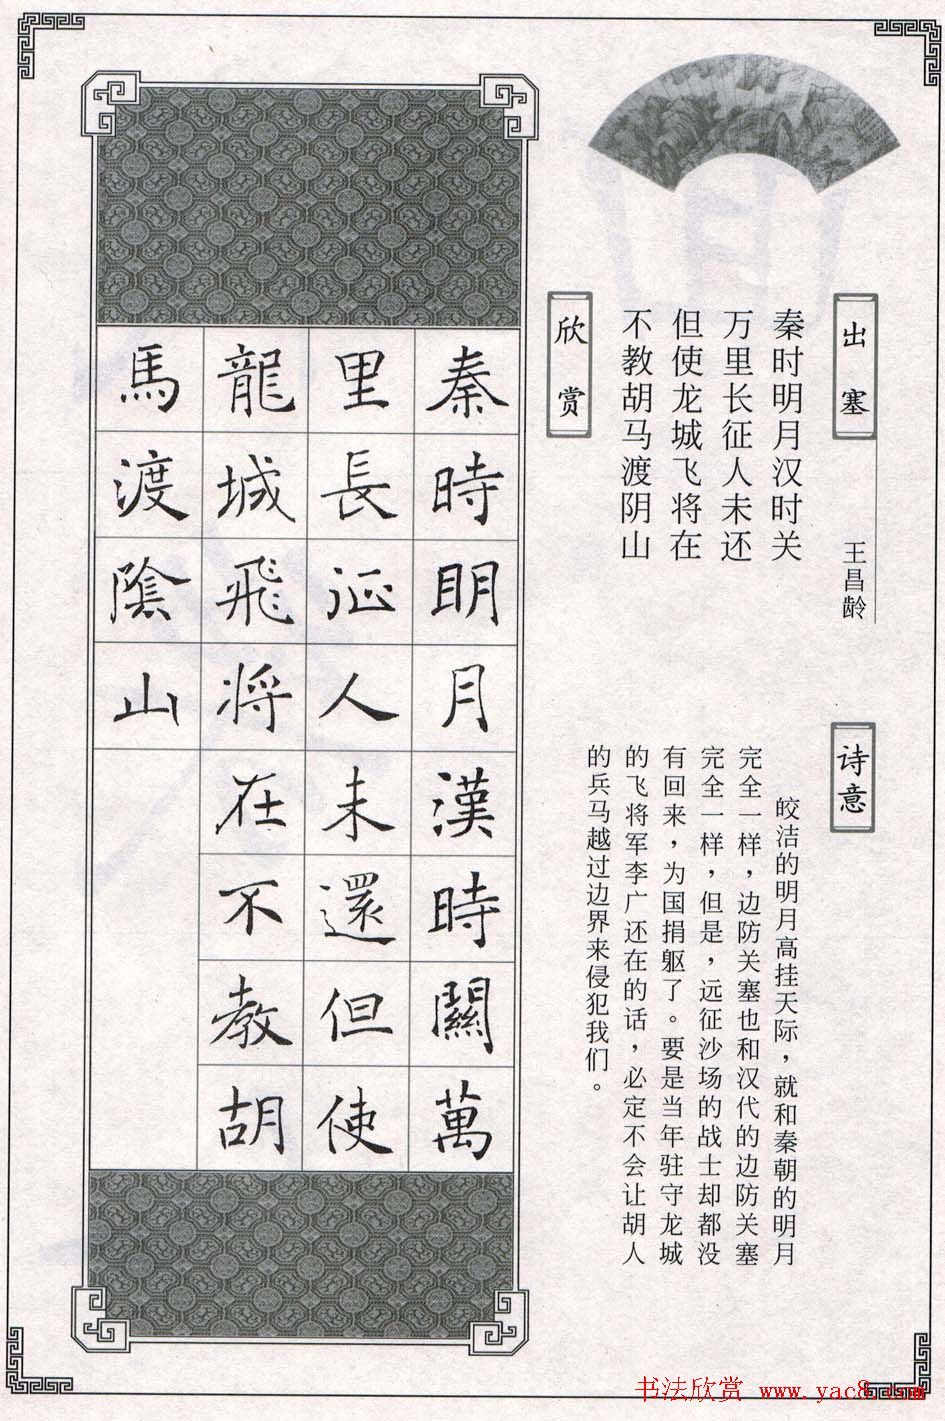 出塞
王昌龄
秦时明月汉时关
万里长征人未还
但使龙城飞将在
不教胡马渡阴山
诗意
皎洁的明月高挂天际，就和秦朝的明月
完全一样，边防关塞也和汉代的边防关塞
完全一样，但是，远征沙场的战士却都没
有回来，为国捐躯了。要是当年驻守龙城
的飞将军李广还在的话，必定不会让胡人
的兵马越过边界来侵犯我们。
欣赏
秦時明月漢時關萬
里長征人未還但使
龍城飛將在不教胡
馬渡陰山
书法欣赏 www.yac8.com